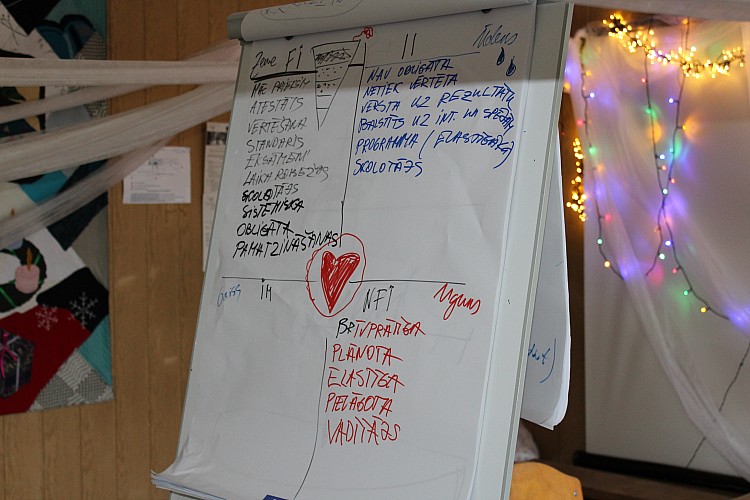 Zeme FI
ATESTĀTS
VĒRTĒŠANA
STANDARTS
EKSĀMENI
SKOLOTĀJS
SISTĒMISKA
OBLIGĀTA
PAMATZINĀŠANAS
II Ūdens
NAV OBLIGĀTA
NETIEK VĒRTĒTA
VĒRSTA UZ REZULTĀTU
BALSTĪTS UZ INT. UN SPĒJĀM
PROGRAMMA (ELASTĪGĀKA)
SKOLOTĀJS
Gaiss IM
NFI Uguns
BRĪVPRĀTĪGA
PLĀNOTA
ELASTĪGA
PIELĀGOTA
VADĪTĀJS